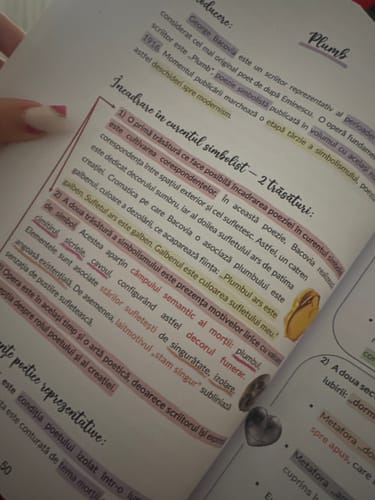 Plumb
George Bacovia este un scriitor reprezentativ al
considerat cel mai original poet de după Eminescu. O operă
scriitor este „Plumb", poezie simbolistă publicată în volumul cu același
1916. Momentul publicării marchează o etapă târzie a simbolismului,
astfel deschideri spre modernism.
Încadrare în curentul simbolist – 2 trăsături:
1) O primă trăsătură ce face posibilă încadrarea poeziei în curentul
este cultivarea corespondențelor. În această poezie, Bacovia
corespondența între spațiul exterior și cel sufletesc. Astfel, un catren
este dedicat decorului sumbru, iar al doilea sufletului ars de patima
creației. Cromatica pe care Bacovia o asociază plumbului este
galbenul, culoare a deznării, ce acaparează ființa: „Plumbul ars este
galben. Sufletul ars este galben. Galbenul este culoarea sufletului meu.
2) A doua trăsătură a simbolismului este prezența motivelor lirice
de simbol. Acestea aparțin câmpului semantic al morții: plumbul,
cimitirul, sicriele, cavoul, configurând astfel decorul funerar.
Elementele sunt asociate stărilor sufletești de singurătate, izolare,
angoasă existențială. De asemenea, laitmotivul „stam singur" subliniază
senzația de pustiire sufletească.
Opera este în același timp și o artă poetică, deoarece scriitorul își
concepția despre rolul poetului și al creației.
poetice reprezentative:
este condiția poetului izolat într-o
este conturată de
50
2) A doua
iubirii:
Metafora
spre apus, care
Metafora